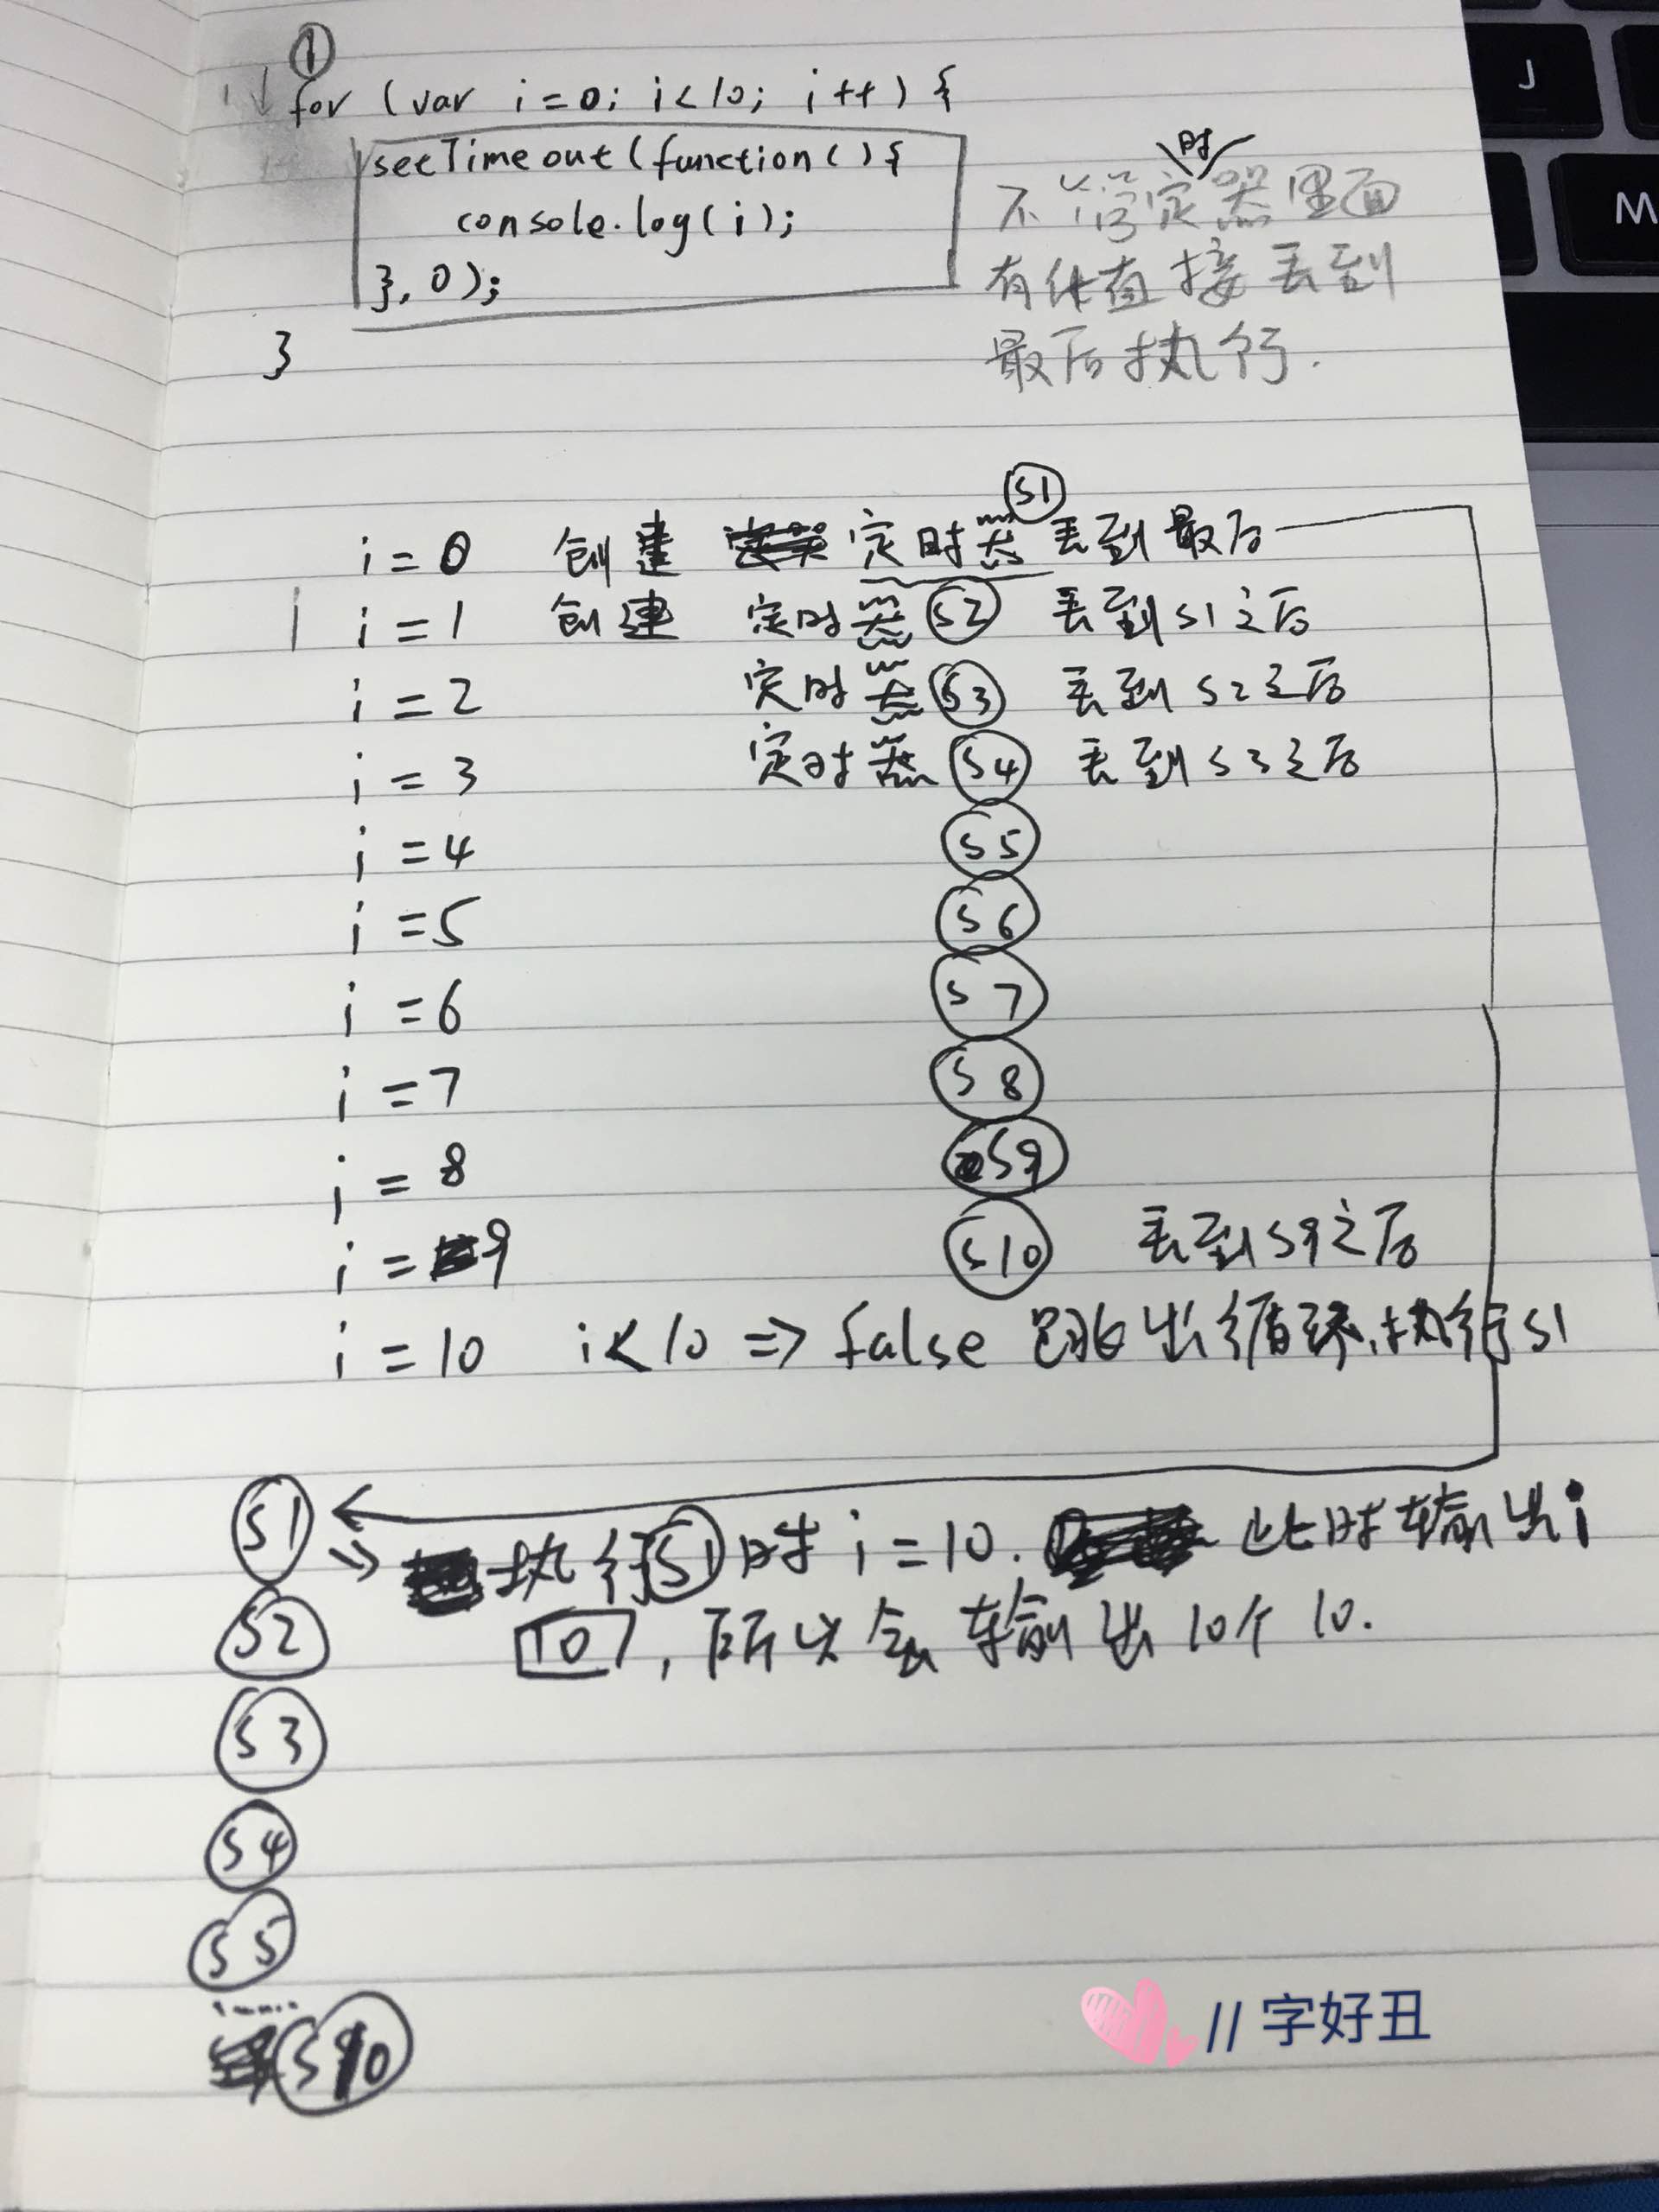 ①
for (var i=0; i<10; i++) {
setTimeout(function(){
console.log(i);
}, 0);
}
不管定时器里面
有什直接丢到
最后执行.
i=0 创建 定时器 S1 丢到最后
i=1 创建 定时器 S2 丢到S1之后
i=2 定时器 S3 丢到S2之后
i=3 定时器 S4 丢到S3之后
i=4 S5
i=5 S6
i=6 S7
i=7 S8
i=8 S9
i=9 S10 丢到S9之后
i=10 i<10 => false 跳出循环,执行S1
S1 执行S1时 i=10. 此时输出i
S2 10, 所以会输出10个10.
S3
S4
S5
......
S10
// 字好丑
J
M